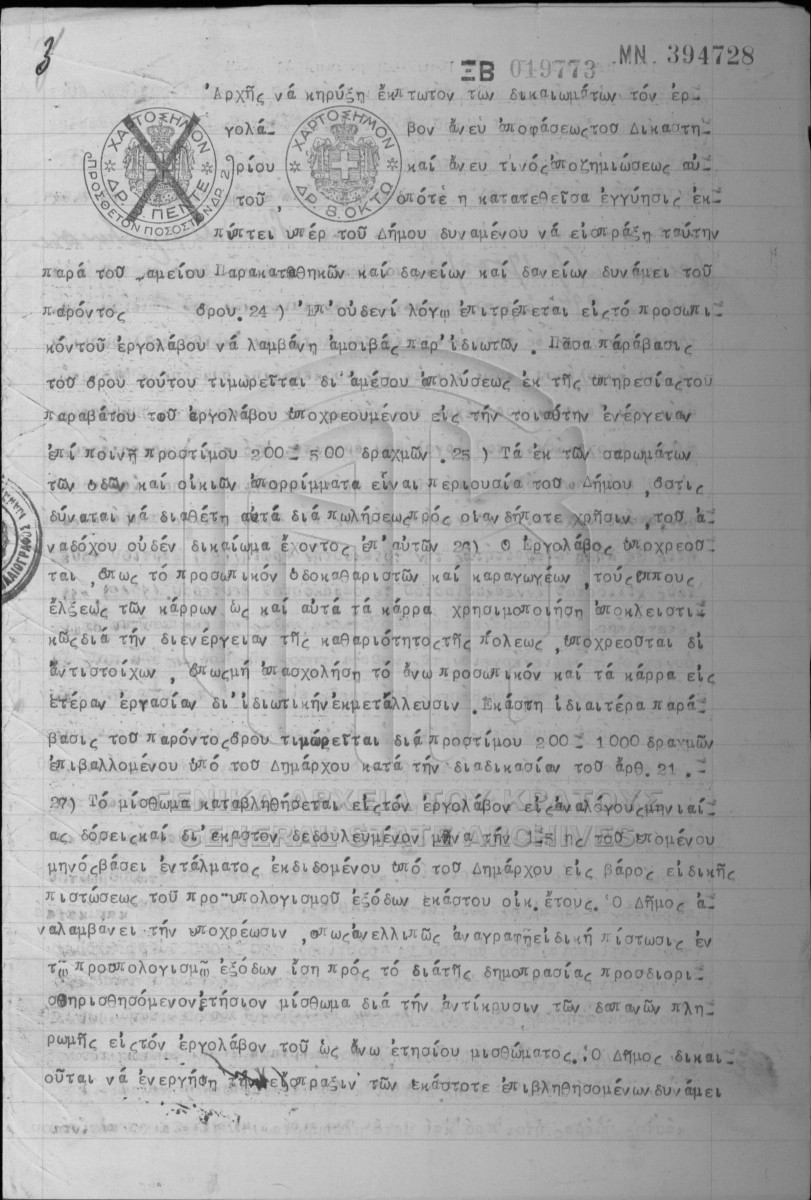 3
ΞΒ 019773 ΜΝ. 394728
Ἀρχῆς νά κηρύξη ἔκπτωτον των δικαιωμάτων τόν ἐρ-
γολά- βον ἄνευ ἀποφάσεωςτου Δικαστη-
ρίου καί ἄνευ τινόςἀποζημιώσεως αὐ-
τοῦ, ὁπότε η κατατεθεῖσα ἐγγύησις ἐκ-
πίπτει ὑπέρ τοῦ Δήμου δυναμένου νά εἰσπράξη ταύτην
ΧΑΡΤΟΣΗΜΟΝ
ΔΡ. 5 ΠΕΝΤΕ
ΠΡΟΣΘΕΤΟΝ ΠΟΣΟΣΤΟΝ ΔΡ. 2
ΧΑΡΤΟΣΗΜΟΝ
ΔΡ. 8. ΟΚΤΩ
παρά τοῦ αμείου Παρακαταθηκῶν καίδανείων καί δανείων δυνάμει τοῦ
παρόντος ὅρου. 24 ) Ἐπ'οὐδενί λόγω ἐπιτρέπεται εἰςτό προσωπι-
κόντοῦ ἐργολάβου νά λαμβάνη ἀμοιβάς παρ'ἰδιωτῶν . Πᾶσα παράβασις
τοῦ ὅρου τούτου τιμωρεῖται δι'ἀμέσου ἀπολύσεως ἐκ τῆς ὑπηρεσίαςτου
παραβάτου τοῦ ἐργολάβου ὑποχρεουμένου εἰς τήν τοιαύτην ἐνέργειαν
ἐπί ποινῆ προστίμου 200 - 500 δραχμῶν . 25 ) Τά ἐκ τῶν σαρωμάτων
τῶν ὁδῶν καί οἰκιῶν ἀπορρίμματα εἶναι περιουσία τοῦ Δήμου , ὅστις
δύναται νά διαθέτη αὐτά διά πωλήσεωςπρός οἱανδήποτε χρῆσιν , τοῦ ἀ-
ναδόχου οὐδέν δικαίωμα ἔχοντος ἐπ'αὐτῶν 26) Ο Ἐργολάβος ὑποχρεοῦ-
ται , ὅπως τό προσωπικόν ὁδοκαθαριστῶν καί καραγωγέων , τούςἵππους
ἕλξεώς τῶν κάρρων ὡς καί αὐτά τά κάρρα χρησιμοποιήση ἀποκλειστι-
κῶςδιά τήν διενέργειαν τῆς καθαριότητοςτῆς Πόλεως , ὑποχρεοῦται δι
ἀντιστοίχων , ὅπωςμή ἀπασχολήση τό ἄνω προσωπικόν καί τά κάρρα εἰς
ἑτέραν ἐργασίαν δι'ἰδιωτικήνἐκμετάλλευσιν . Ἑκάστη ἰδιαιτέρα παρά-
βασις τοῦ παρόντοςὅρου τιμωρεῖται διά προστίμου 200 - 1000 δραχμῶν
ἐπιβαλλομένου ὑπό τοῦ Δημάρχου κατά τήν διαδικασίαν τοῦ ἄρθ. 21 .
27) Τό μίσθωμα καταβληθήσεται εἰςτόν ἐργολάβον εἰςἀναλόγουςμηνιαί-
ας δόσειςκαί δι'ἕκαστον δεδουλευμένον μῆνα τήν 1-5 ης τοῦ ἑπομένου
μηνόςβάσει ἐντάλματος ἐκδιδομένου ὑπό τοῦ Δημάρχου εἰς βάρος εἰδικῆς
πιστώσεως τοῦ προ-υπολογισμοῦ ἐξόδων ἑκάστου οἰκ. ἔτους. Ὁ Δῆμος ἀ-
ναλαμβάνει τήν ὑποχρέωσιν , ὅπωςἀνελλιπῶς ἀναγραφῆεἰδική πίστωσις ἐν
τῷ προσπολογισμῷ ἐξόδων ἴση πρός τό διάτῆς δημοπρασίας προσδιορι-
σθηρισθησόμενονἐτήσιον μίσθωμα διά τήν ἀντίκρυσιν τῶν δαπανῶν πλη-
ρωμῆς εἰςτόν ἐργολάβον τοῦ ὡς ἄνω ἐτησίου μισθώματος. Ὁ Δῆμος δικαι-
οῦται νά ἐνεργήση τήν εἴσπραξιν τῶν ἑκάστοτε ἐπιβληθησομένων δυνάμει
ΓΕΝΙΚΑ ΑΡΧΕΙΑ ΤΟΥ ΚΡΑΤΟΥΣ
GENERAL STATE ARCHIVES